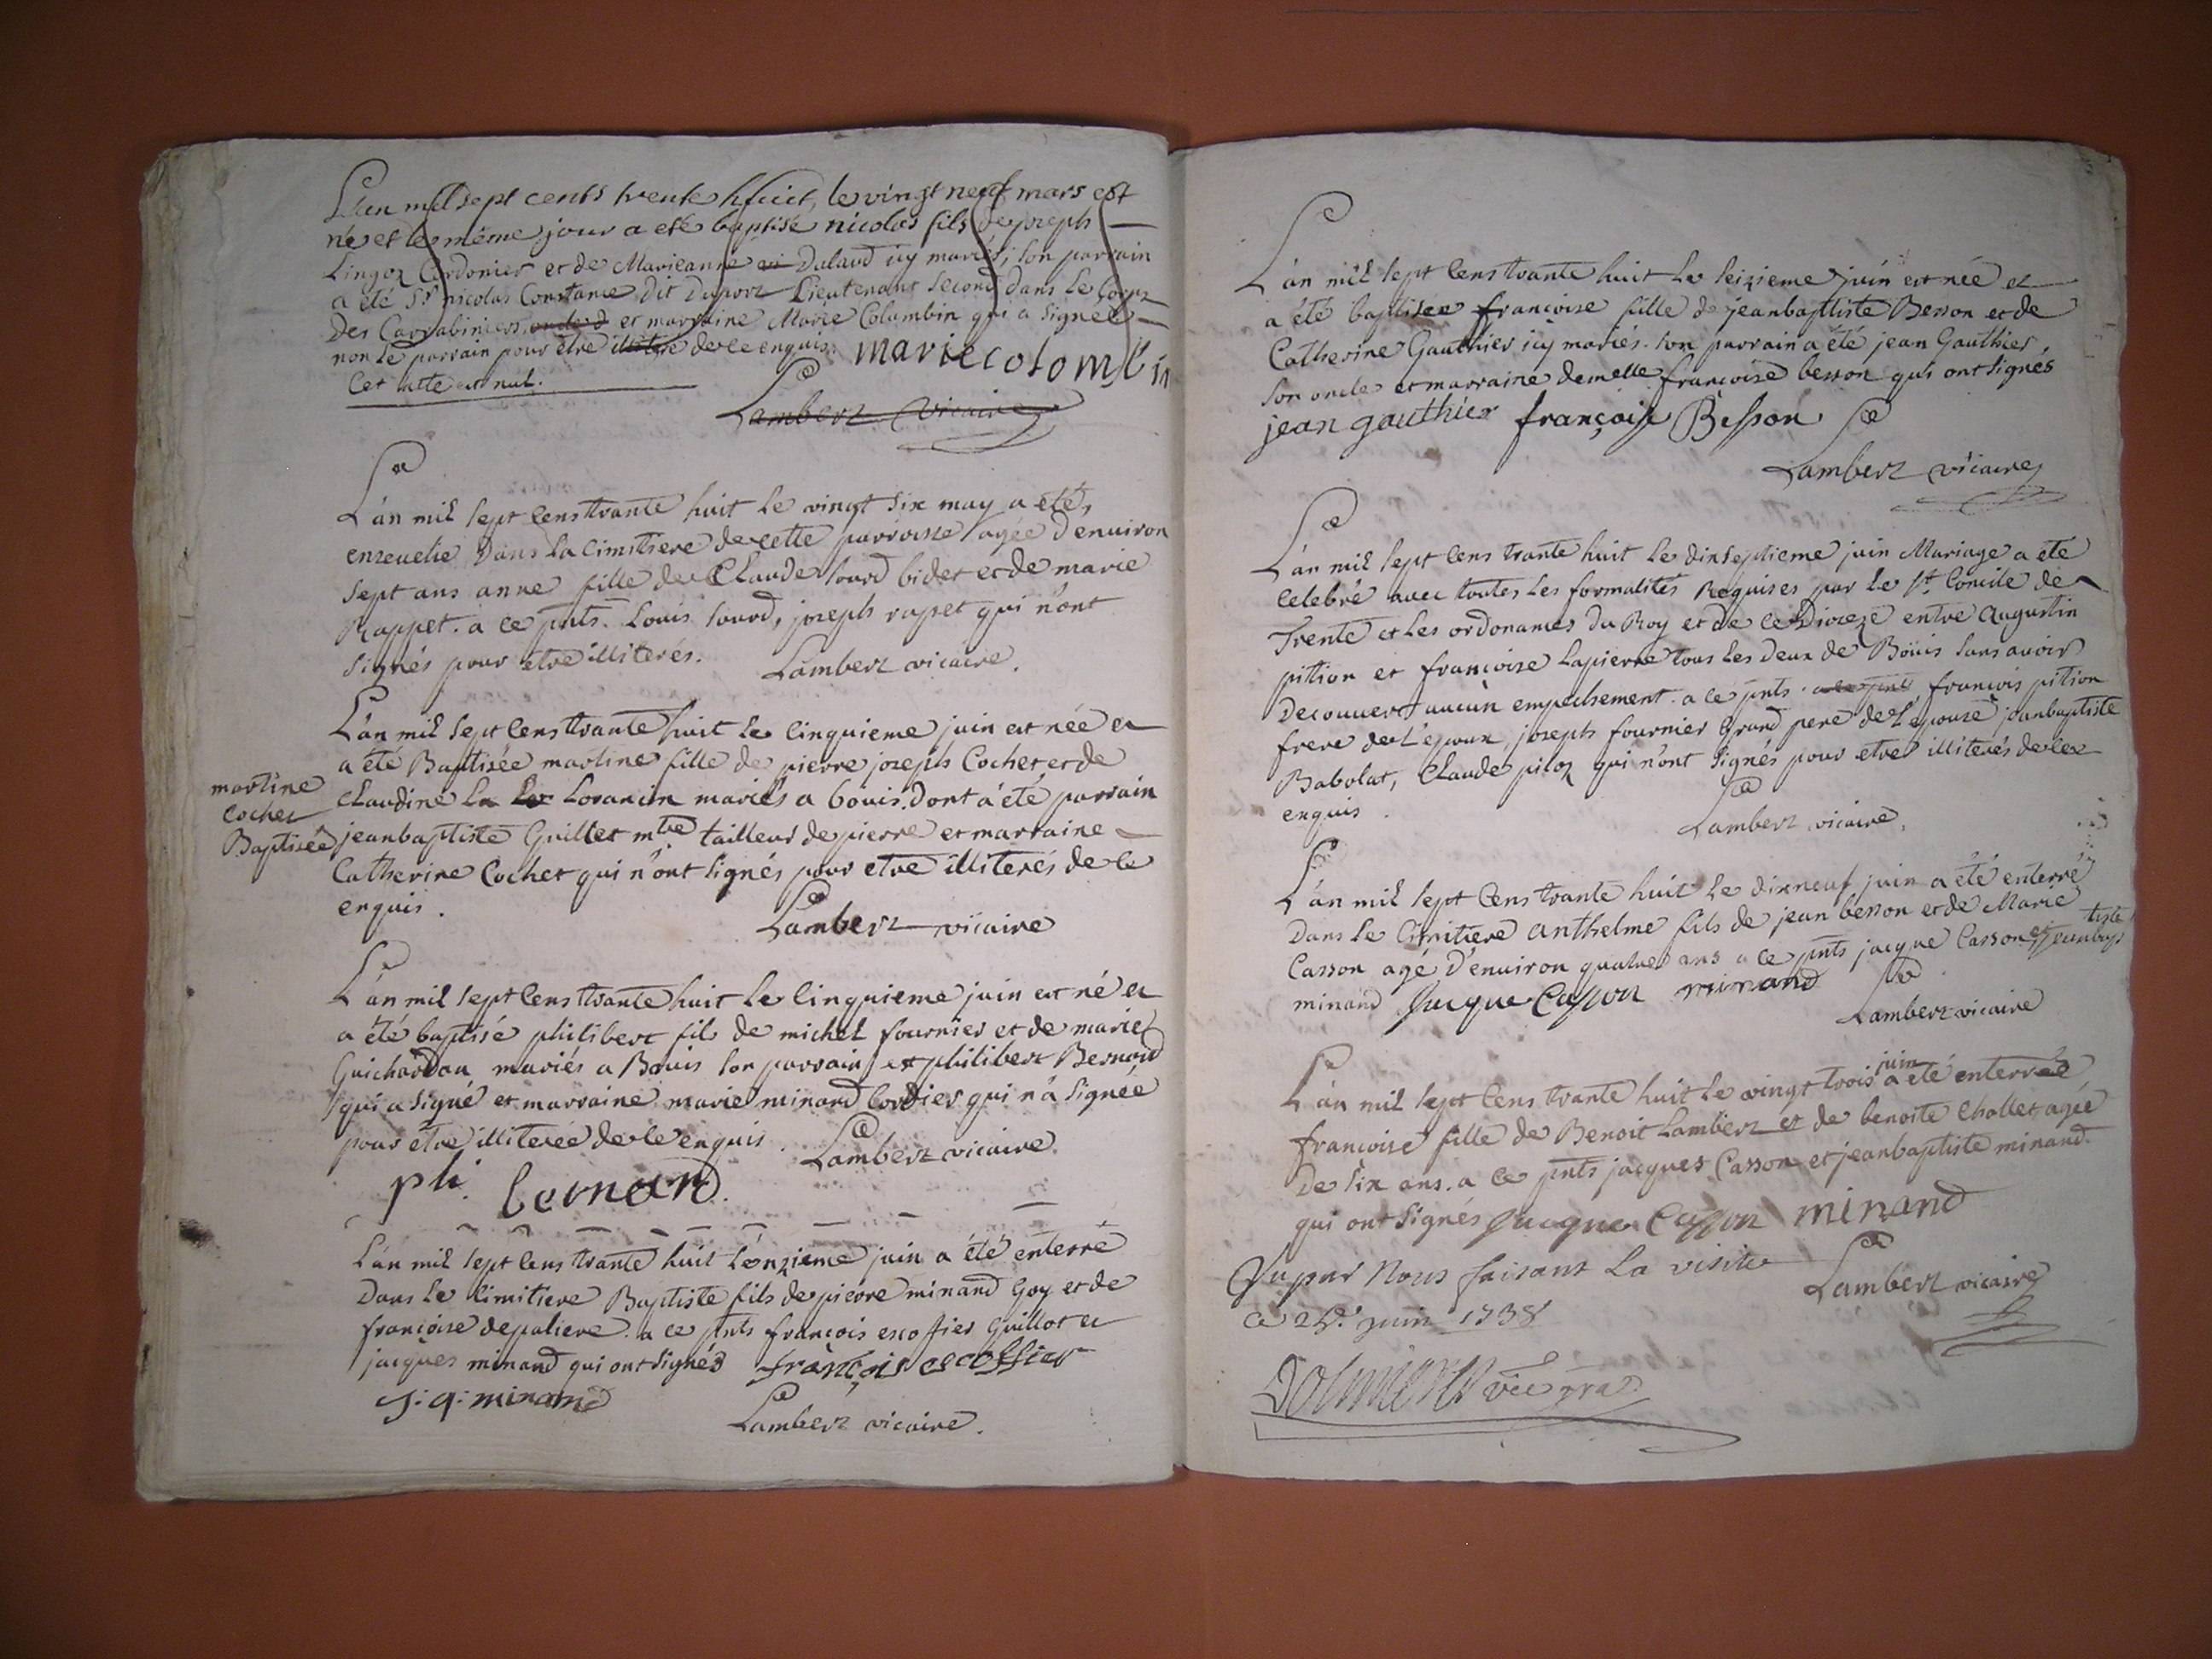 L'an mil sept cents trente huict, le vingt neuf mars est
né et le même jour a eté baptisé nicolas fils de joseph
Lingoz Cordonier et de Marieanne Dalaud icy mariés, son parrain
a été Sr nicolas Constance dit Duport Lieutenant second dans le Corps
des Carrabiniers et marraine Marie Colombin qui a signée
non le parrain pour être illiteré de ce enquis. marie colombin
Cet acte est nul.
Lambert vicaire
L'an mil sept cens trante huit le vingt six may a été
enseuelie dans la cimitiere de cette parroisse agée d'enuiron
sept ans anne fille de Claude sourd bidet et de marie
Rappet. a ce pnts. Louis sourd, joseph rapet qui n'ont
signés pour etre illiterés. Lambert vicaire.
L'an mil sept cens trante huit le cinquieme juin est née et
a été Baptisée martine fille de pierre joseph Cochet et de
martine
cochet
Baptisée
Claudine La Le Lorancin mariés a bouis. Dont a été parrain
jeanbaptiste Guillet mtre tailleur de pierre et marraine
Catherine Cochet qui n'ont signés pour etre illiterés de ce
enquis.
Lambert vicaire
L'an mil sept cens trante huit le cinquieme juin est né et
a été baptisé philibert fils de michel fournier et de marie
Guichardan mariés a Bouis son parrain est philibert Bernard
qui a signé et marraine marie minand Cordier qui n'a signée
pour étre illiterée de ce enquis. Lambert vicaire.
phi. bernard.
L'an mil sept cens trante huit l'onzieme juin a été enterré
Dans le cimitiere Baptiste fils de pierre minand Goy et de
francoise depaliere. a ce pnts francois escoffier Guillot et
jacques minand qui ont signés françois escoffier
j: q: minand
Lambert vicaire.
L'an mil sept cens trante huit le seizieme juin est née et
a été baptisée francoise fille de jeanbaptiste Besson et de
Catherine Gauthier icy mariés. son parrain a été jean Gauthier
son oncle et marraine demelle francoise besson qui ont signés
jean gauthier françoise Besson
Lambert vicaire
L'an mil sept cens trante huit le dixseptieme juin Mariage a été
celebré avec toutes les formalités Requises par le st. Concile de
Trente et les ordonances du Roy et de ce Diozeze entre Augustin
pition et francoise Lapierre tous les deux de Boüis sans avoir
Decouuert aucun empechement. a ce pnts. a ce pnts francois pition
frere de l'epoux, joseph fournier Grand pere de l'epouse jeanbaptiste
Babolat, Claude piloz qui n'ont signés pour etre illiterés de ce
enquis.
Lambert vicaire.
L'an mil sept cens trante huit le dixneuf juin a été enterré
Dans le Cimitiere anthelme fils de jean besson et de Marie
Casson agé d'enuiron quatre ans a ce pnts jacque Casson et jeanbaptiste
minand Jacque Casson minand
Lambert vicaire
L'an mil sept cens trante huit le vingt trois juin a été enterrée
francoise fille de Benoit Lambert et de benoite Chollet agée
De six ans. a ce pnts jacques Casson et jeanbaptiste minand.
qui ont signés Jacque Casson minand
Vu par Nous faisant La visite
Lambert vicaire
ce 25e. juin 1738
vic gral